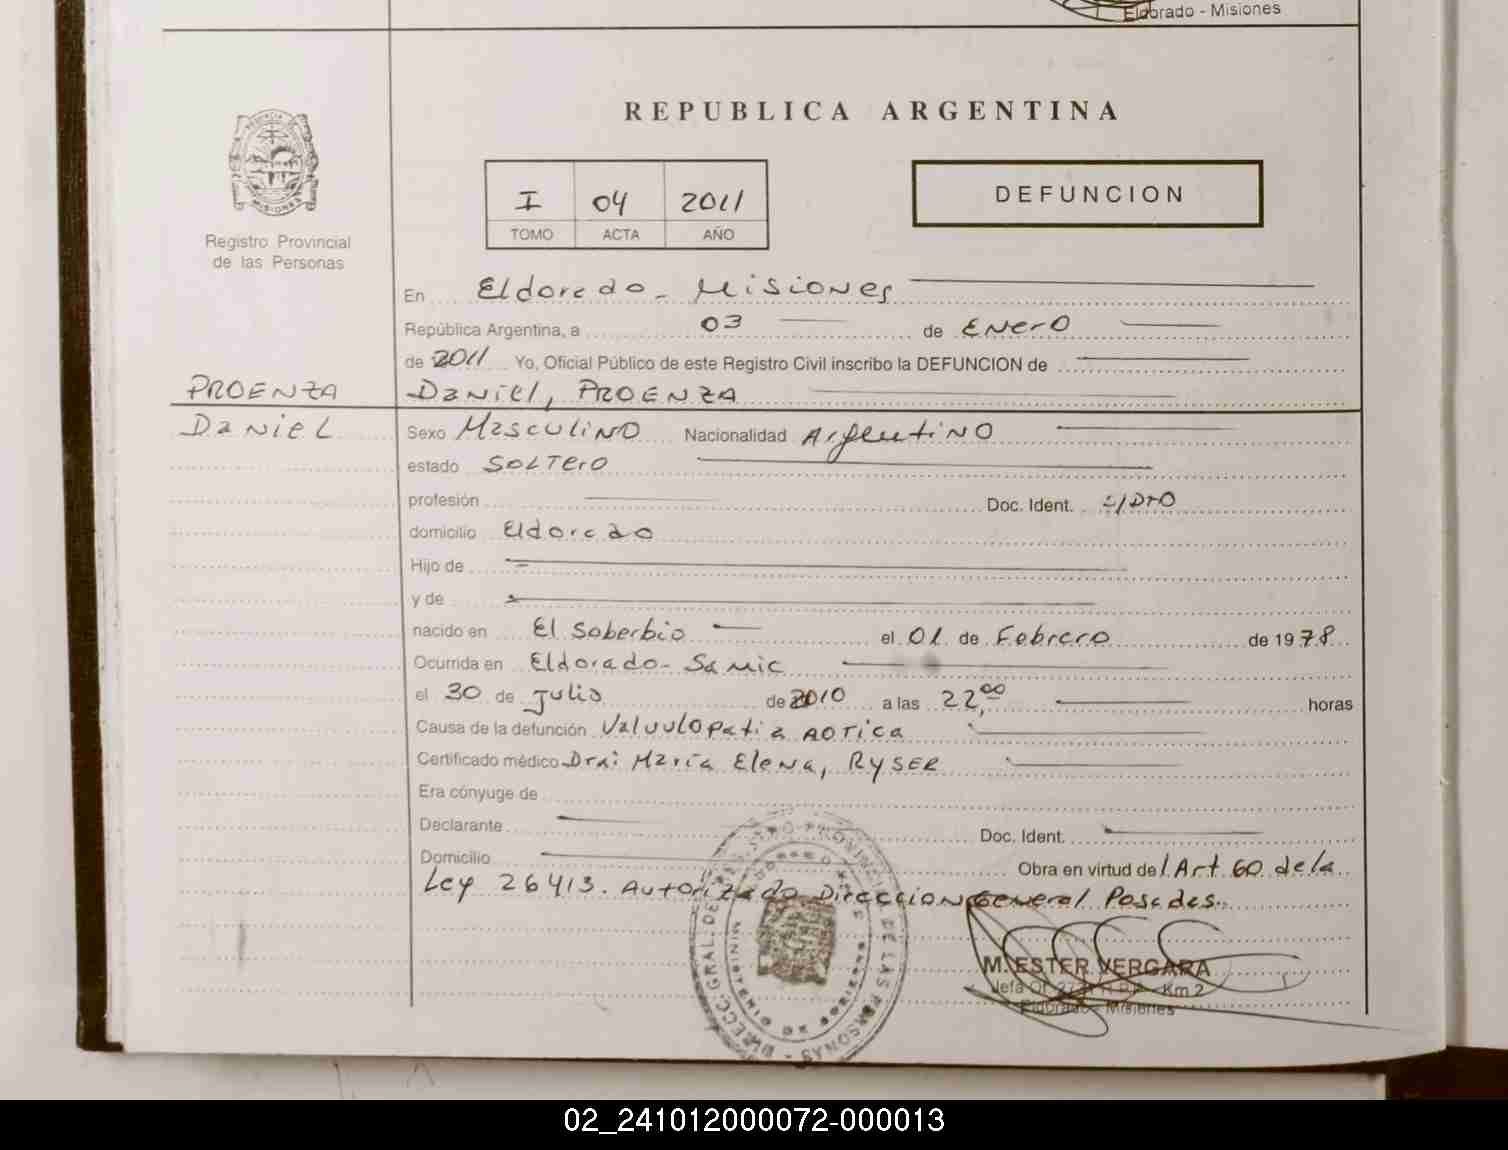 Eldorado - Misiones
REPUBLICA ARGENTINA
I 04 2011
TOMO ACTA AÑO
DEFUNCION
Registro Provincial
de las Personas
En Eldorado - Misiones
República Argentina, a 03 de Enero
de 2011 Yo, Oficial Público de este Registro Civil inscribo la DEFUNCION de
PROENZA
Daniel, PROENZA
Daniel
Sexo Masculino Nacionalidad Argentino
estado Soltero
profesión Doc. Ident.
domicilio Eldorado
Hijo de
y de
nacido en El Soberbio el 01 de Febrero de 1978
Ocurrida en Eldorado - Samic
el 30 de Julio de 2010 a las 22,00 horas
Causa de la defunción Valvulopatia Aotica
Certificado médico Dra: María Elena, RYSER
Era cónyuge de
Declarante Doc. Ident.
Domicilio Obra en virtud del Art 60 de la
Ley 26413. Autorizado Direccion General Posadas.
M. ESTER VERGARA
Jefa Of. Km 2
Eldorado - Misiones
02_241012000072-000013